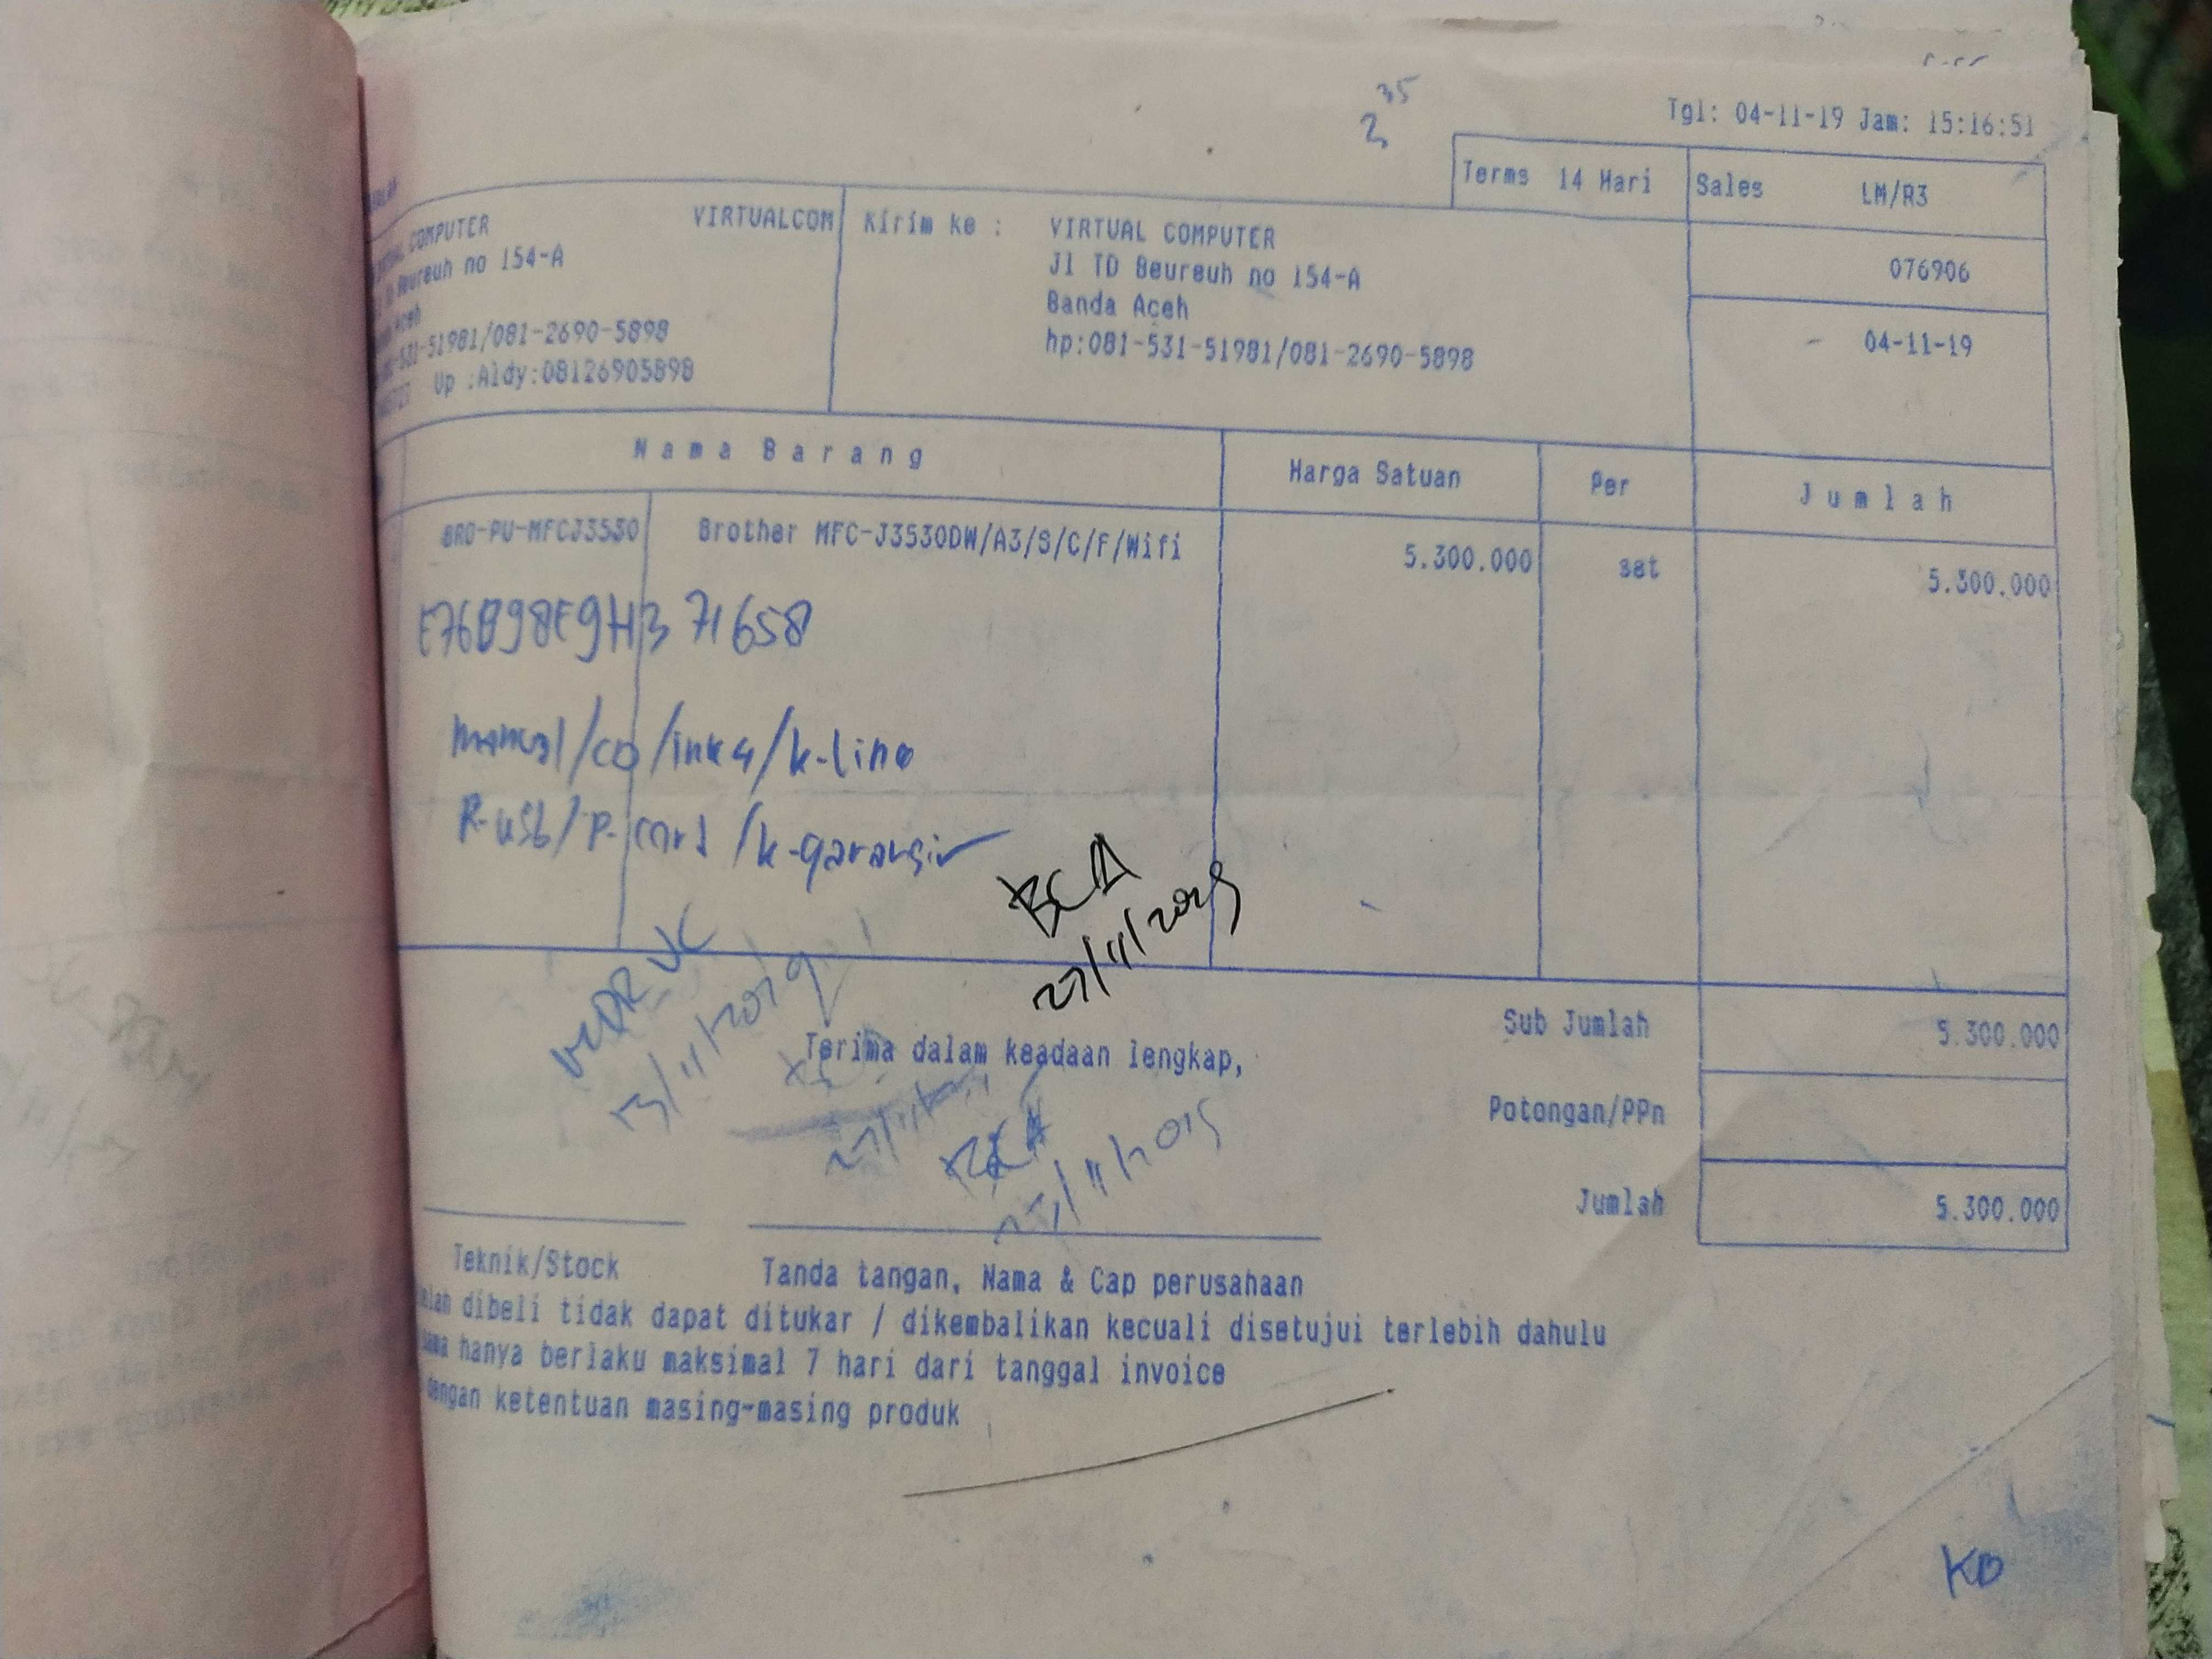 Tgl: 04-11-19 Jam: 15:16:51
Terms 14 Hari
Sales LM/R3
076906
04-11-19
COMPUTER VIRTUALCOM
Beureuh no 154-A
Aceh
531-51981/081-2690-5898
Up :Aldy:08126905898
Kirim ke : VIRTUAL COMPUTER
Jl TD Beureuh no 154-A
Banda Aceh
hp:081-531-51981/081-2690-5898
Nama Barang Harga Satuan Per Jumlah
BRO-PU-MFCJ3530 Brother MFC-J3530DW/A3/S/C/F/Wifi 5.300.000 set 5.300.000
E76B98E9H371658
manual/CD/ink4/k-line
k-usb/P-cord/k-garansi
BCA
27/11/2019
13/11/2019
Terima dalam keadaan lengkap,
BCA
Sub Jumlah 5.300.000
Potongan/PPn
Jumlah 5.300.000
Teknik/Stock
Tanda tangan, Nama & Cap perusahaan
dibeli tidak dapat ditukar / dikembalikan kecuali disetujui terlebih dahulu
hanya berlaku maksimal 7 hari dari tanggal invoice
dengan ketentuan masing-masing produk
KB